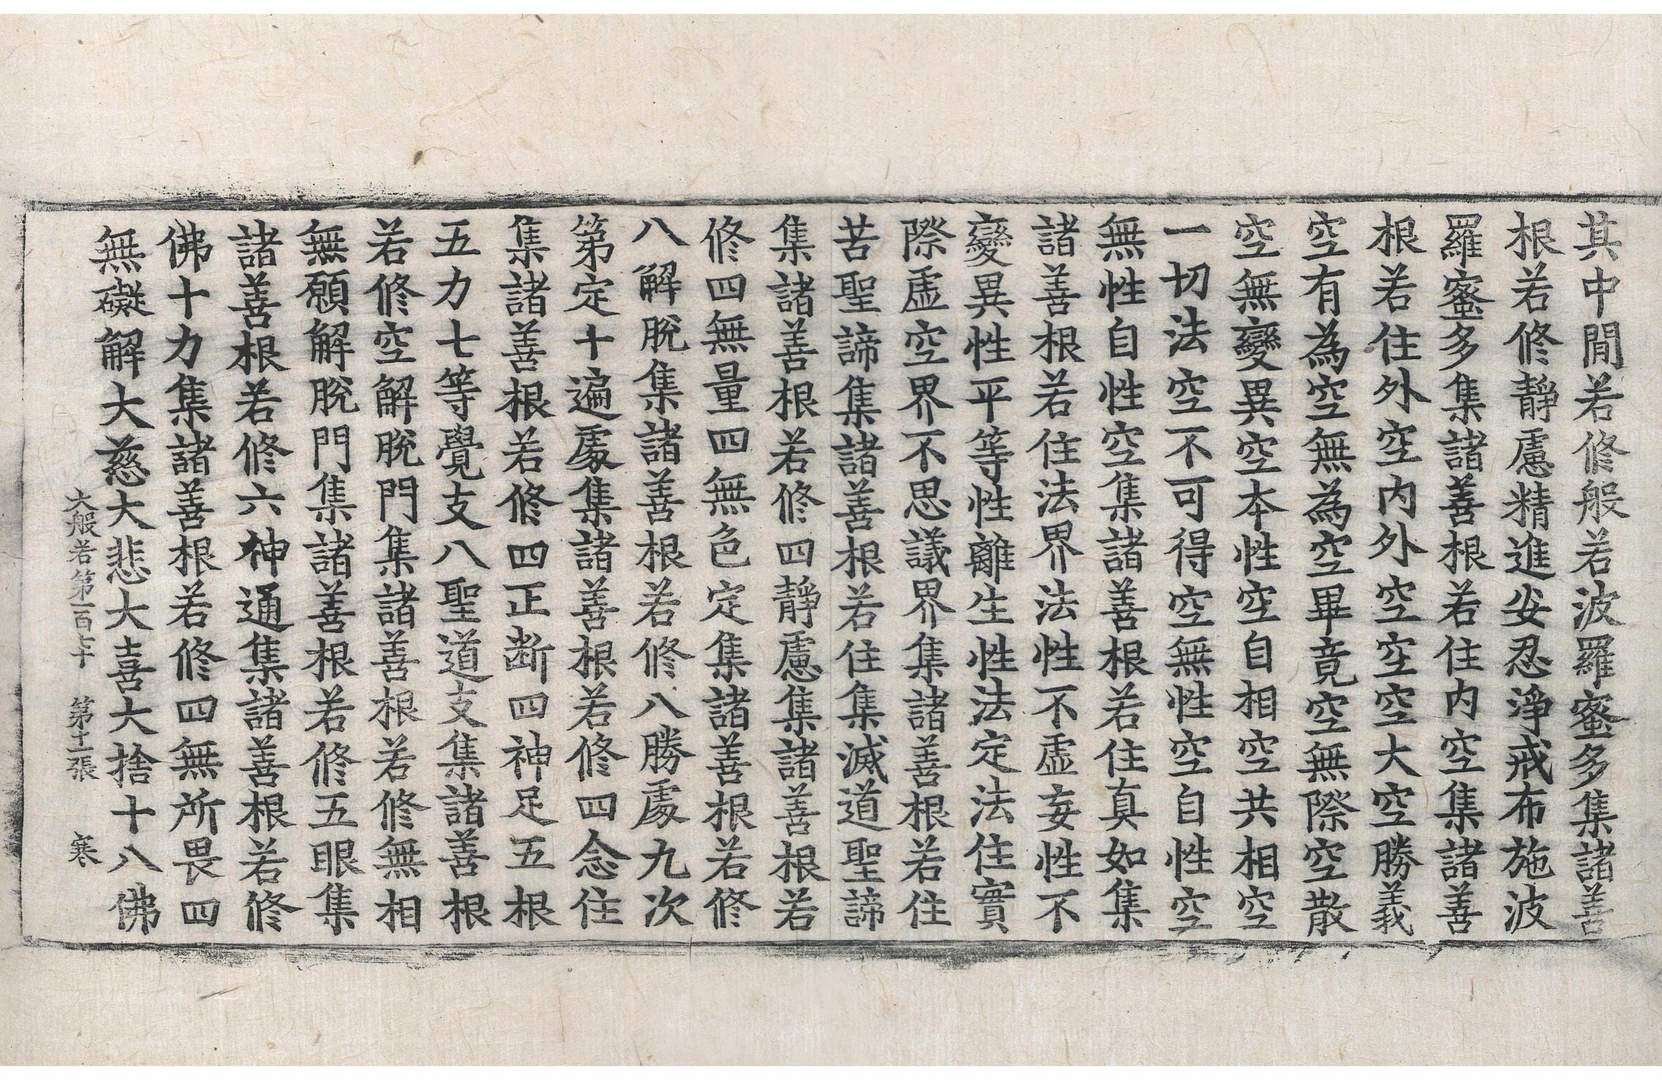 其中間若修般若波羅蜜多集諸善
根若修靜慮精進安忍淨戒布施波
羅蜜多集諸善根若住內空集諸善
根若住外空內外空空空大空勝義
空有為空無為空畢竟空無際空散
空無變異空本性空自相空共相空
一切法空不可得空無性空自性空
無性自性空集諸善根若住真如集
諸善根若住法界法性不虛妄性不
變異性平等性離生性法定法住實
際虛空界不思議界集諸善根若住
苦聖諦集諸善根若住集滅道聖諦
集諸善根若修四靜慮集諸善根若
修四無量四無色定集諸善根若修
八解脫集諸善根若修八勝處九次
第定十遍處集諸善根若修四念住
集諸善根若修四正斷四神足五根
五力七等覺支八聖道支集諸善根
若修空解脫門集諸善根若修無相
無願解脫門集諸善根若修五眼集
諸善根若修六神通集諸善根若修
佛十力集諸善根若修四無所畏四
無礙解大慈大悲大喜大捨十八佛
大般若第一百七十 第十一張 寒